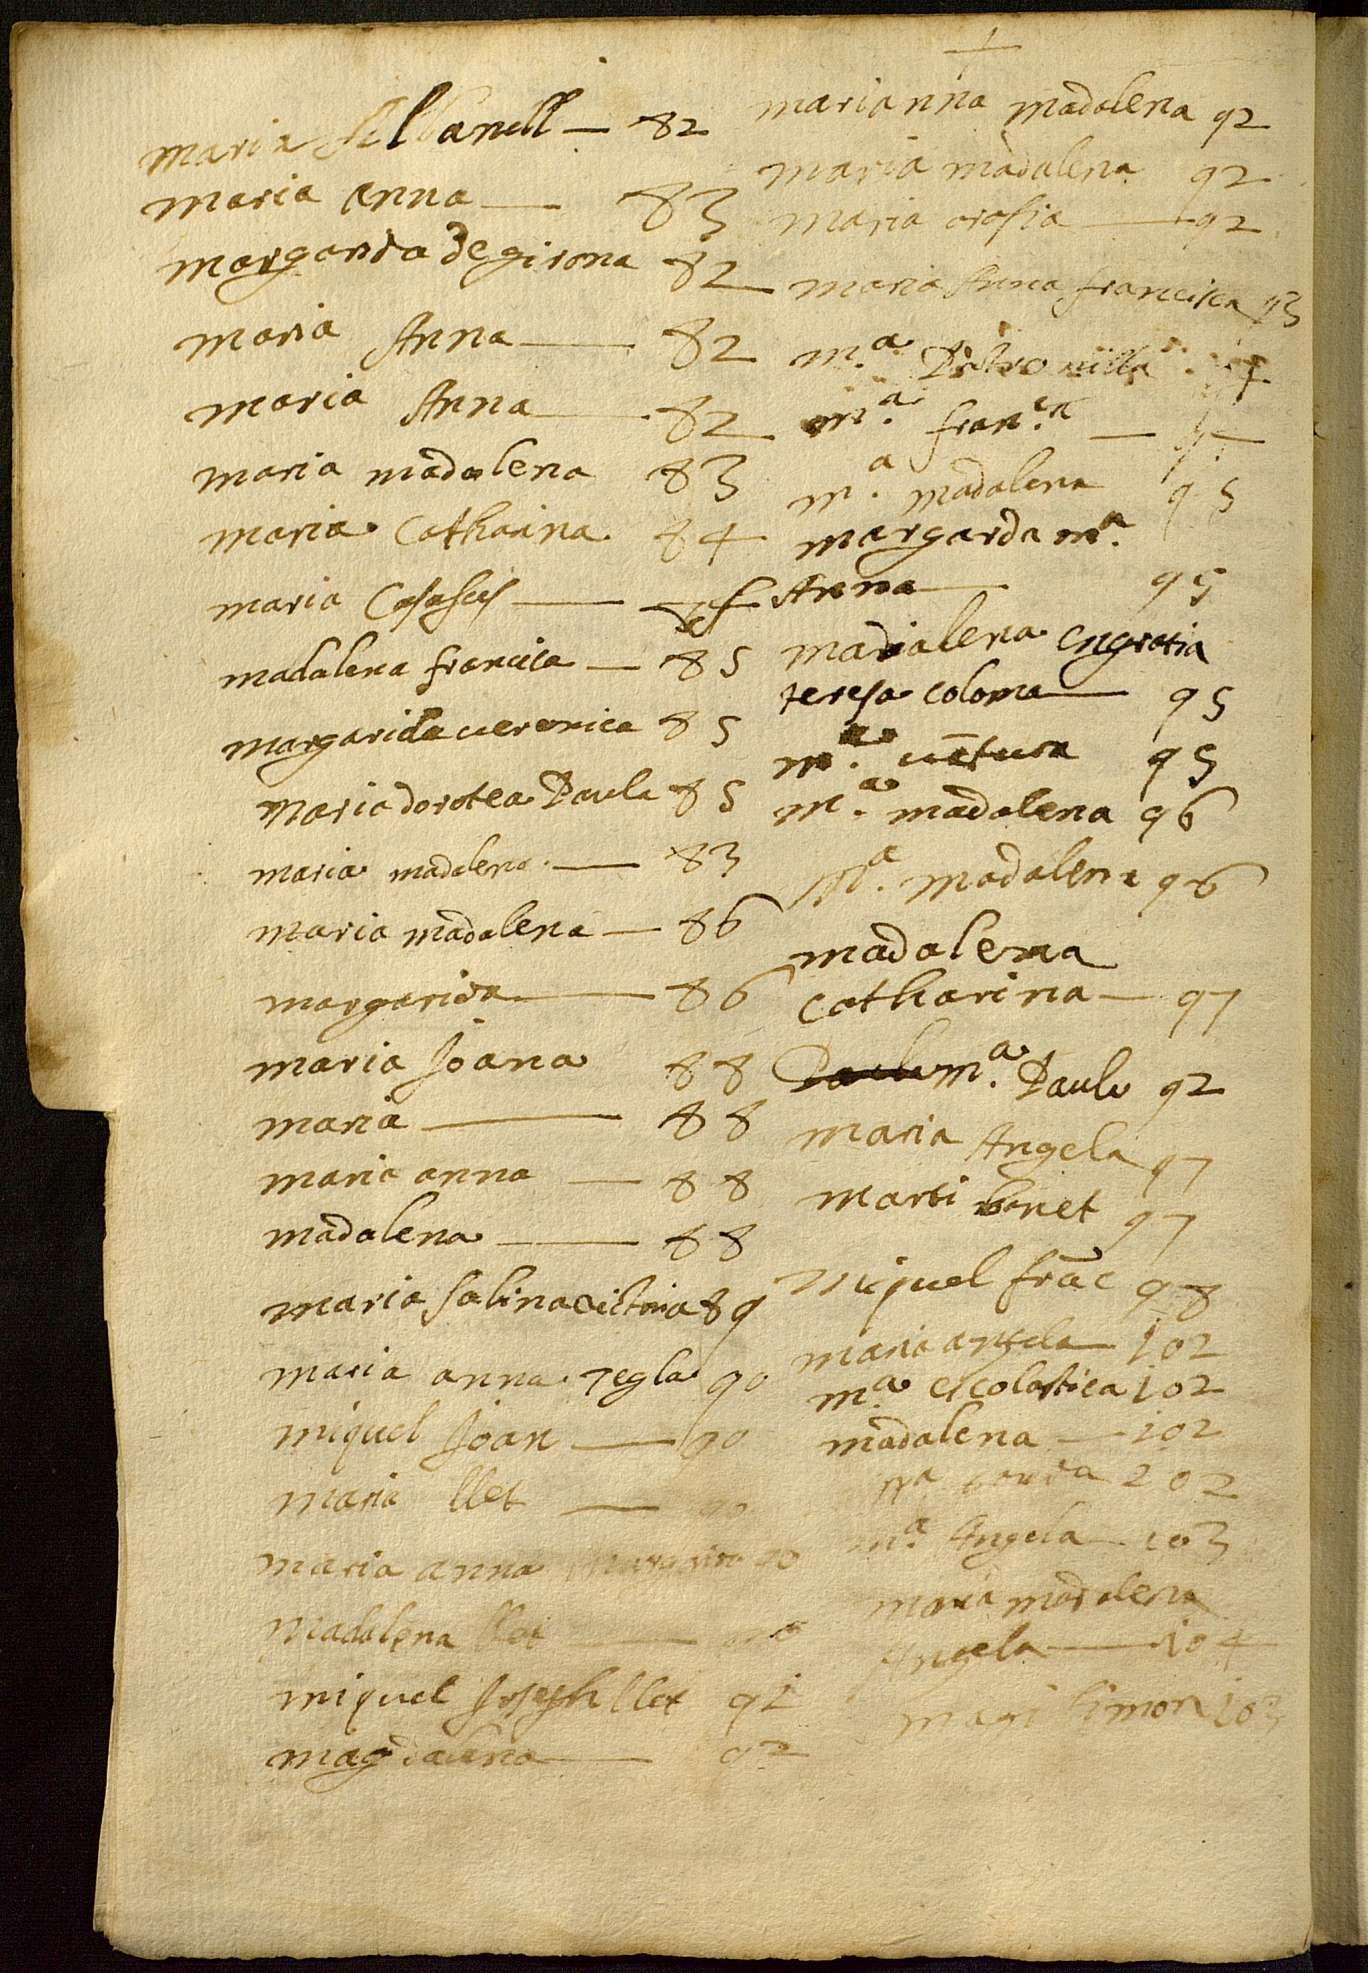 maria anell — 82
maria anna — 83
margarida de girona 82
maria Anna — 82
maria Anna — 82
maria madalena 83
maria Catharina 84
maria
madalena francisca — 85
margarida veronica 85
Maria dorotea Paula 85
maria madalena — 83
maria madalena — 86
margarida — 86
maria Joana 88
maria — 88
maria anna — 88
madalena — 88
maria salina victoria 89
maria anna tegla 90
miquel Joan — 90
maria llet — 90
maria anna 90
Madalena llet —
miquel Joseph llet 91
magdalena — 92
+
marianna madalena 92
maria madalena 92
maria orosia — 92
maria Anna francisca 93
m.ª Petronilla
m.ª fran.ca —
m.ª madalena 95
margarda m.ª
Anna — 95
madalena engratia
teresa coloma — 95
m.ª vētura 95
m.ª madalena 96
M.ª madalena 96
madalena
catharina — 97
Paula m.ª Paula 92
maria Angela 97
marti bonet 97
Miquel frāc 98
maria angela 102
m.ª escolastica 102
madalena — 102
202
m.ª Angela — 103
maria madalena
Angela — 104
magi simon 103